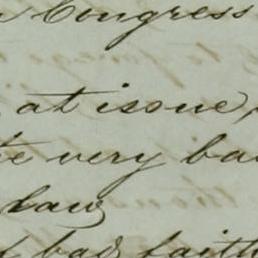 Congress
at issue,
very ba
law
bad faith